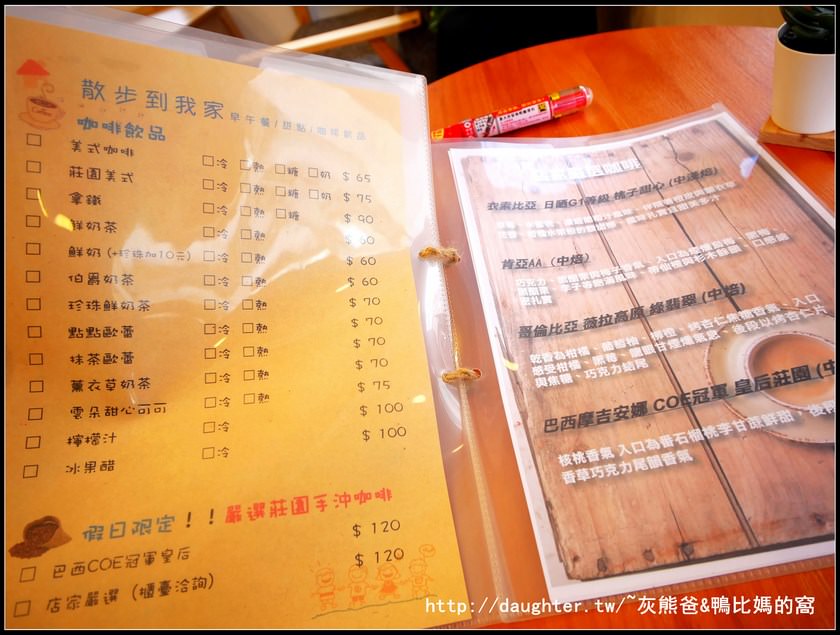 散步到我家 早午餐/甜點/咖啡飲品
咖啡飲品
□ 美式咖啡 □冷 □熱 □糖 □奶 $ 65
□ 莊園美式 □冷 □熱 □糖 □奶 $ 75
□ 拿鐵 □冷 □熱 □糖 $ 90
□ 鮮奶茶 □冷 □熱 $ 60
□ 鮮奶 (+珍珠加10元) □冷 □熱 $ 60
□ 伯爵奶茶 □冷 □熱 $ 60
□ 珍珠鮮奶茶 □冷 □熱 $ 70
□ 點點歐蕾 □冷 □熱 $ 70
□ 抹茶歐蕾 □冷 □熱 $ 70
□ 薰衣草奶茶 □冷 □熱 $ 75
□ 雲朵甜心可可 □冷 □熱 $ 100
□ 檸檬汁 □冷 $ 100
□ 冰果醋 □冷
假日限定!!嚴選莊園手沖咖啡
□ 巴西COE冠軍皇后 $ 120
□ 店家嚴選 (櫃臺洽詢) $ 120
咖啡
衣索比亞 日晒G1等級 桃子甜心 (中淺焙)
肯亞AA (中焙)
哥倫比亞 薇拉高原 綠翡翠 (中焙)
乾香為柑橘、葡萄柚、柳橙、烤杏仁焦糖香氣、入口
感受柑橘、黑莓、龍眼甘煙燻氣息、後段以烤杏仁片
與焦糖、巧克力結尾
巴西摩吉安娜 COE冠軍 皇后莊園 (中
核桃香氣 入口為番石榴桃李甘蔗鮮甜、後
香草巧克力尾韻香氣
http://daughter.tw/~灰熊爸&鴨比媽的窩